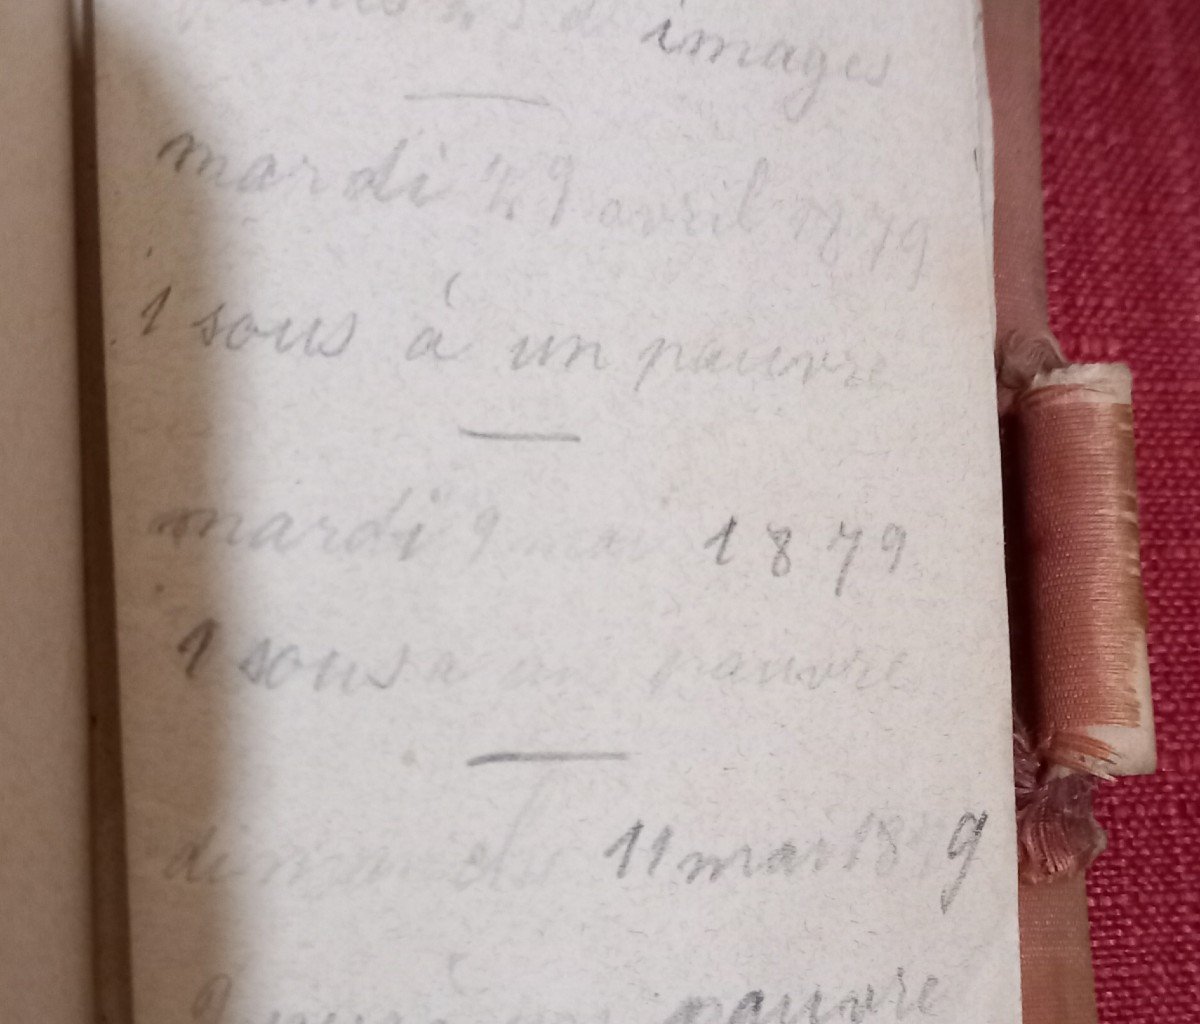 images
mardi 29 avril 1879
1 sous à un pauvre
mardi 9 mai 1879
1 sous à un pauvre
dimanche 11 mai 1879
pauvre